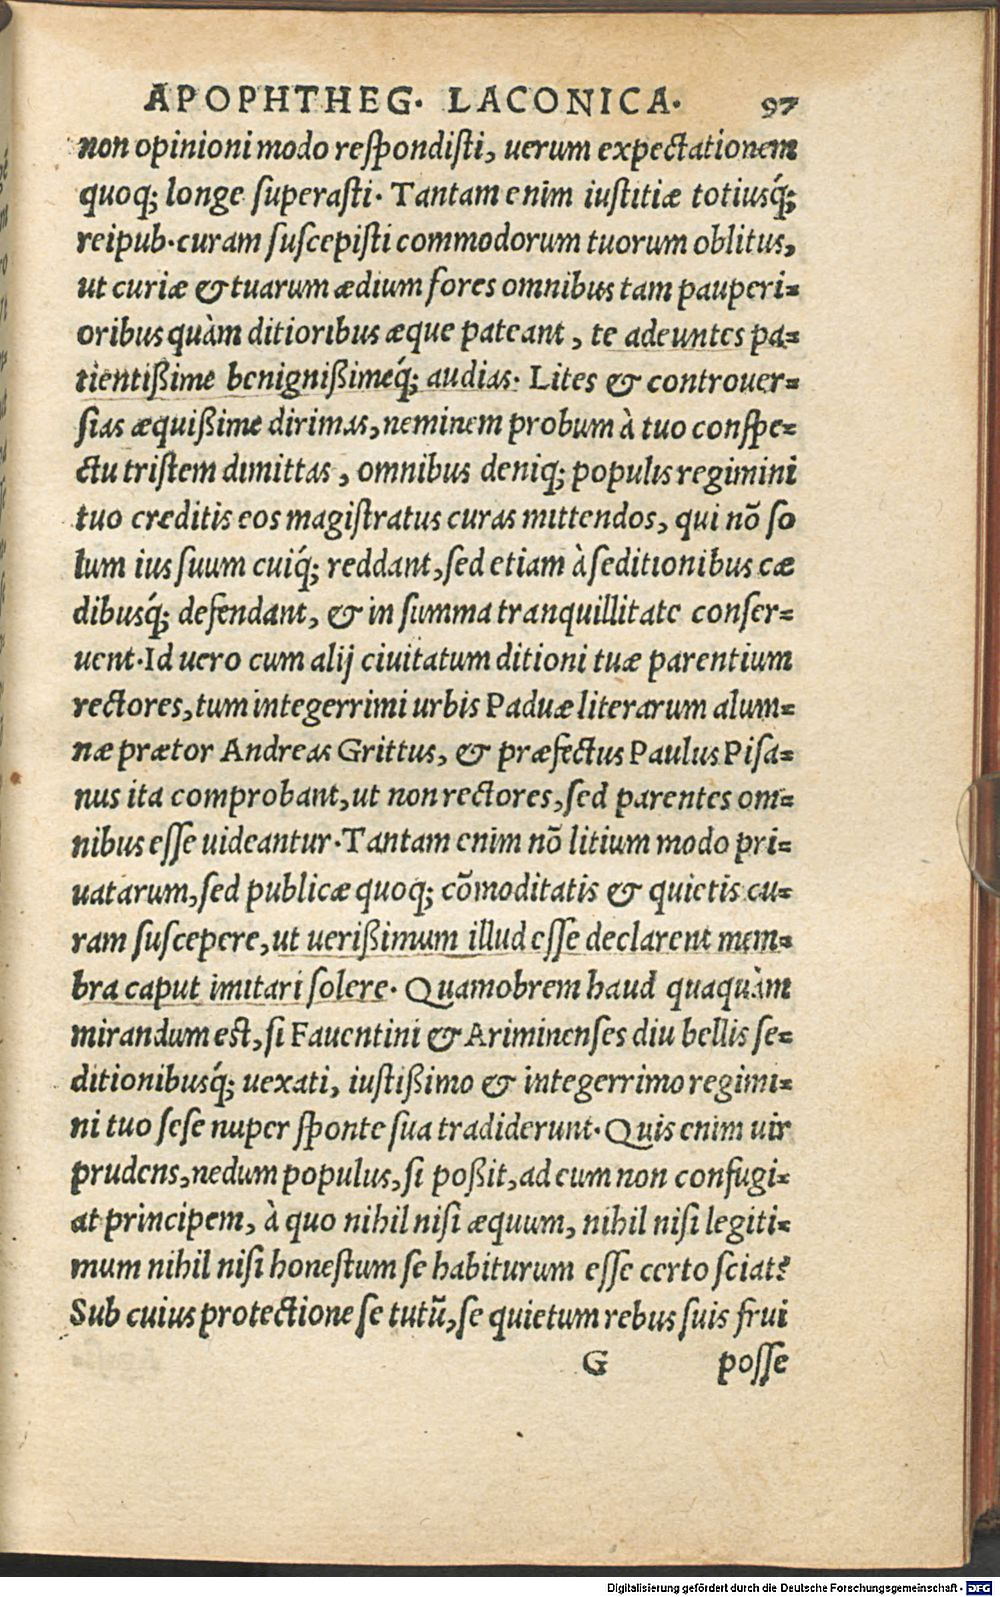 APOPHTHEG. LACONICA. 97
non opinioni modo reſpondiſti, uerum expectationem
quoq; longe ſuperaſti. Tantam enim iuſtitiæ totiusq́;
reipub. curam ſuſcepiſti commodorum tuorum oblitus,
ut curiæ & tuarum ædium fores omnibus tam pauperi=
oribus quàm ditioribus æque pateant, te adeuntes pa=
tientißime benignißimeq́; audias. Lites & controuer=
ſias æquißime dirimas, neminem probum à tuo conſpe=
ctu triſtem dimittas, omnibus deniq; populis regimini
tuo creditis eos magiſtratus curas mittendos, qui nō ſo
lum ius ſuum cuiq́; reddant, ſed etiam à ſeditionibus cæ
dibusq́; defendant, & in ſumma tranquillitate conſer=
uent. Id uero cum alij ciuitatum ditioni tuæ parentium
rectores, tum integerrimi urbis Paduæ literarum alum=
næ prætor Andreas Grittus, & præfectus Paulus Piſa=
nus ita comprobant, ut non rectores, ſed parentes om=
nibus eſſe uideantur. Tantam enim nō litium modo pri=
uatarum, ſed publicæ quoq; cōmoditatis & quietis cu=
ram ſuſcepere, ut uerißimum illud eſſe declarent mem=
bra caput imitari ſolere. Quamobrem haud quaquàm
mirandum eſt, ſi Fauentini & Ariminenſes diu bellis ſe=
ditionibusq́; uexati, iuſtißimo & integerrimo regimi=
ni tuo ſeſe nuper ſponte ſua tradiderunt. Quis enim uir
prudens, nedum populus, ſi poßit, ad eum non confugi=
at principem, à quo nihil niſi æquum, nihil niſi legiti=
mum nihil niſi honeſtum ſe habiturum eſſe certo ſciat?
Sub cuius protectione ſe tutū, ſe quietum rebus ſuis frui
G poſſe
Digitalisierung gefördert durch die Deutsche Forschungsgemeinschaft - DFG